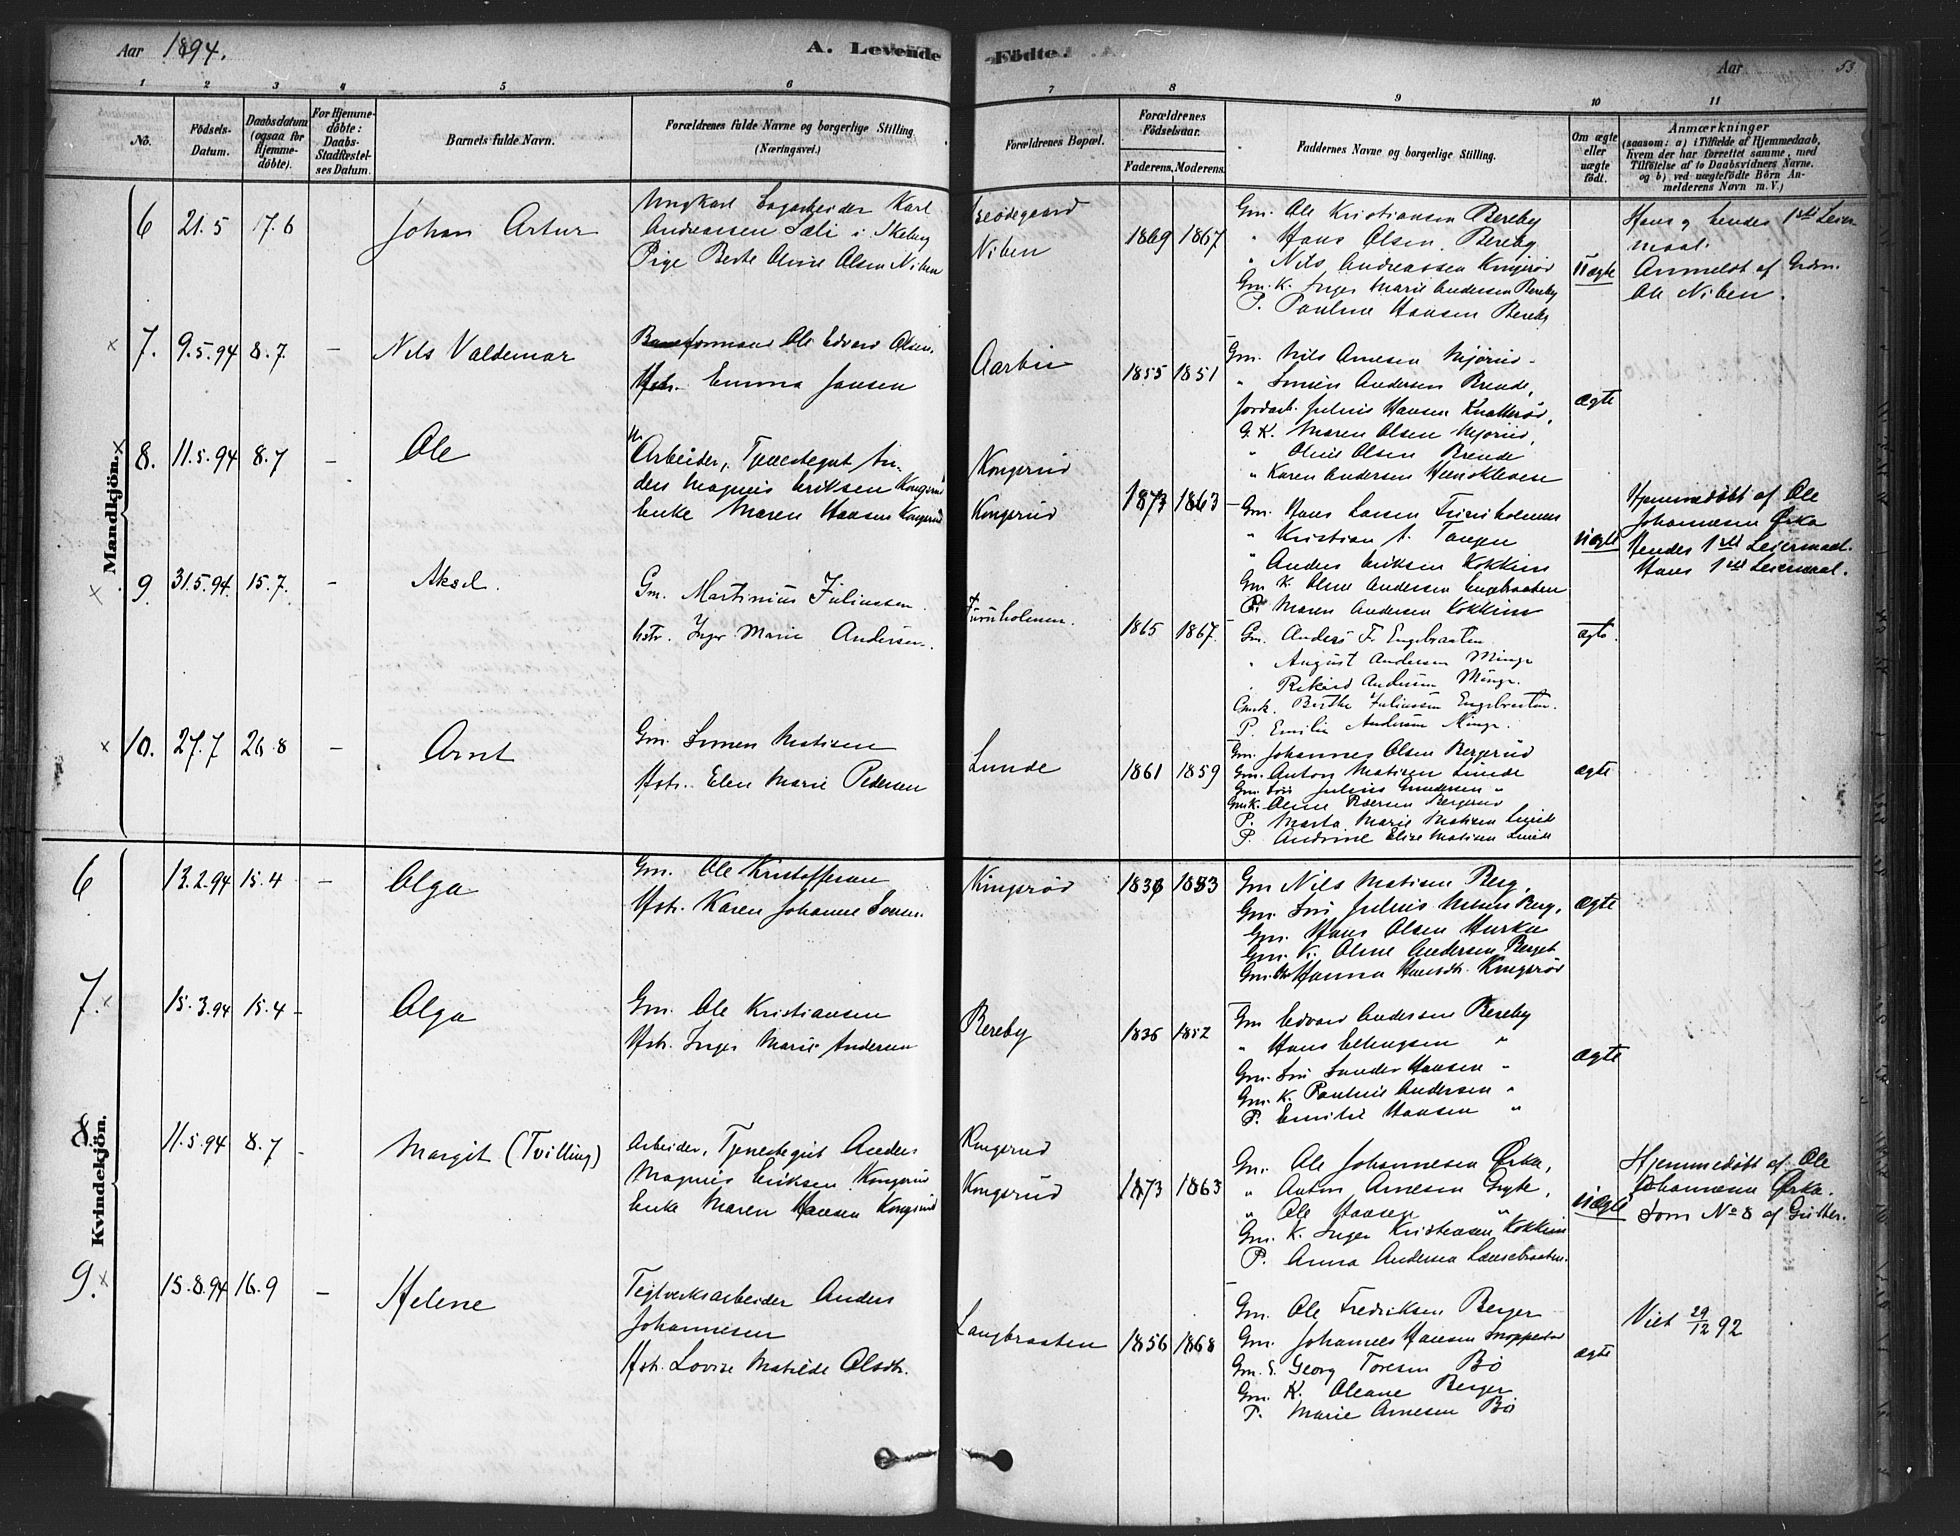 Aar 1894.
A. Levende Födte.
Aar
53
1 2 3 4 5 6 7 8 9 10 11
No.
Födsels-
Datum.
Daabsdatum
(ogsaa for
Hjemme-
döbte).
For Hjemme-
döbte:
Daabs-
Stadfæstel-
ses Datum.
Barnets fulde Navn.
Forældrenes fulde Navne og borgerlige Stilling
(Næringsvei.)
Forældrenes Bopæl.
Forældrenes
Födselsaar.
Faderens. Moderens.
Faddernes Navne og borgerlige Stilling.
Om ægte
eller
uægte
födt.
Anmærkninger
(saasom: a) i Tilfælde af Hjemmedaab,
hvem der har forrettet samme, med
Tilföielse af to Daabsvidners Navne.
og b) ved uægtefödte Börn An-
melderens Navn m. V.)
Mandkjön.
6 21.5 17.6
Johan Artur
Ungkarl Sagarbeider Karl
Andreassen Sæli i Skeberg
Pige Berte Oline Olsen Niben
Niben
1869 1867
Gm. Ole Kristiansen Bereby
" Hans Olsen Bereby
" Nils Andreassen Kingsrød
Gm. K. Inger Marie Andersen Bereby
P. Pauline Hansen Bereby
Uægte
Hans og hendes 1ste Leier-
maal.
Anmeldt af Grdm.
Ole Niben.
7. 9.5.94 8.7 –
Nils Valdemar
Baneformand Ole Edvard Olsen.
Hstr. Emma Jansen
1855 1851
Gm. Nils Arnesen Mjørud
" Simen Andersen Brende,
Jordarb. Julius Hansen Knatterød,
G. K. Maren Olsen Mjørud,
" Oline Olsen Brende
" Karen Andersen
ægte
8. 11.5.94 8.7 –
Ole
Arbeider, Tjenestegut An-
ders Magnus Eriksen Kongsrud
Enke Maren Hansen Kongsrud
Kongsrud
Kongsrud
1873 1863
Gm. Hans Larsen Furuholmen
" Kristian A. Tangen
" Anders Eriksen Kokkim
Gm K. Oline Andersen Engebraaten
P. Maren Andersen Kokkim
uægte
Hjemmedøbt af Ole
Johannesen Ørka
Hendes 1ste Leiermaal.
Hans 1ste Leiermaal.
9. 31.5.94. 15.7. –
Aksel.
Gm. Martinius Juliussen.
hstr. Inger Marie Andersen.
Furuholmen.
1865 1867.
Gm. Anders Fr. Engebraaten
" August Andersen Minge
" Rikard Andersen Minge.
Gmk. Berthe Juliussen Engebraaten.
P. Emilie Andersen Minge.
ægte.
10. 27.7 26.8 –
Arnt
Gm. Simen Matisen
Hstr. Elen Marie Pedersen
Lunde
1861 1859
Gm. Johannes Olsen Bergerud
Gm. Anton Matisen Lunde
Gm. Søn Julius Gundersen "
Gmk. Oline Pedersen Bergerud
P. Marta Marie Matisen Lunde
P. Andrine Elise Matisen Lunde
ægte
Kvindekjön.
6 13.2.94 15.4 –
Olga
Gm. Ole Kristoffersen
Hstr. Karen Johanne Soren.
Kingsrød
Gm Nils Matisen Berg,
Gm. Søn Julius Nilsen Berg,
Gm. Hans Olsen Hurka
Gm. K. Oline Andersen Berget
Hanna Hansdtr. Kingsrød
ægte
7. 15.3.94 15.4 –
Olga
Gm. Ole Kristiansen
Hstr. Inger Marie Andersen
Bereby
Gm Edvard Andersen Bereby
" Hans Ellingsen "
Gm. Søn Sander Hansen "
Gm. K. Pauline Andersen "
P. Emilie Hansen "
ægte
8. 11.5.94 8.7 –
Margit (Tvilling)
Arbeider, Tjenestegut Anders
Magnus Eriksen Kongsrud
Enke Maren Hansen Kongsrud
Kongsrud
Kongsrud
1873 1863
Gm. Ole Johannesen Ørka,
" Anton Arnesen Gryte,
" Ole Hansen "
Gm. K. Inger Kristiansen Kokkim
P. Anna Andersen
uægte
Hjemmedøbt af Ole
Johannesen Ørka.
Som No 8 af Gutter.
9. 15.8.94 16.9 –
Helene
Teglverksarbeider Anders
Johannesen
Hstr. Lovise Matilde Olsdtr.
Langbraaten
1856 1868
Gm. Ole Fredriksen Berger
Gm. Johannes Hansen
Gm. S. Georg Toresen Bø
Gm. K. Oleane Berger
P. Marie Arnesen Bø
ægte
Viet 29/12 92